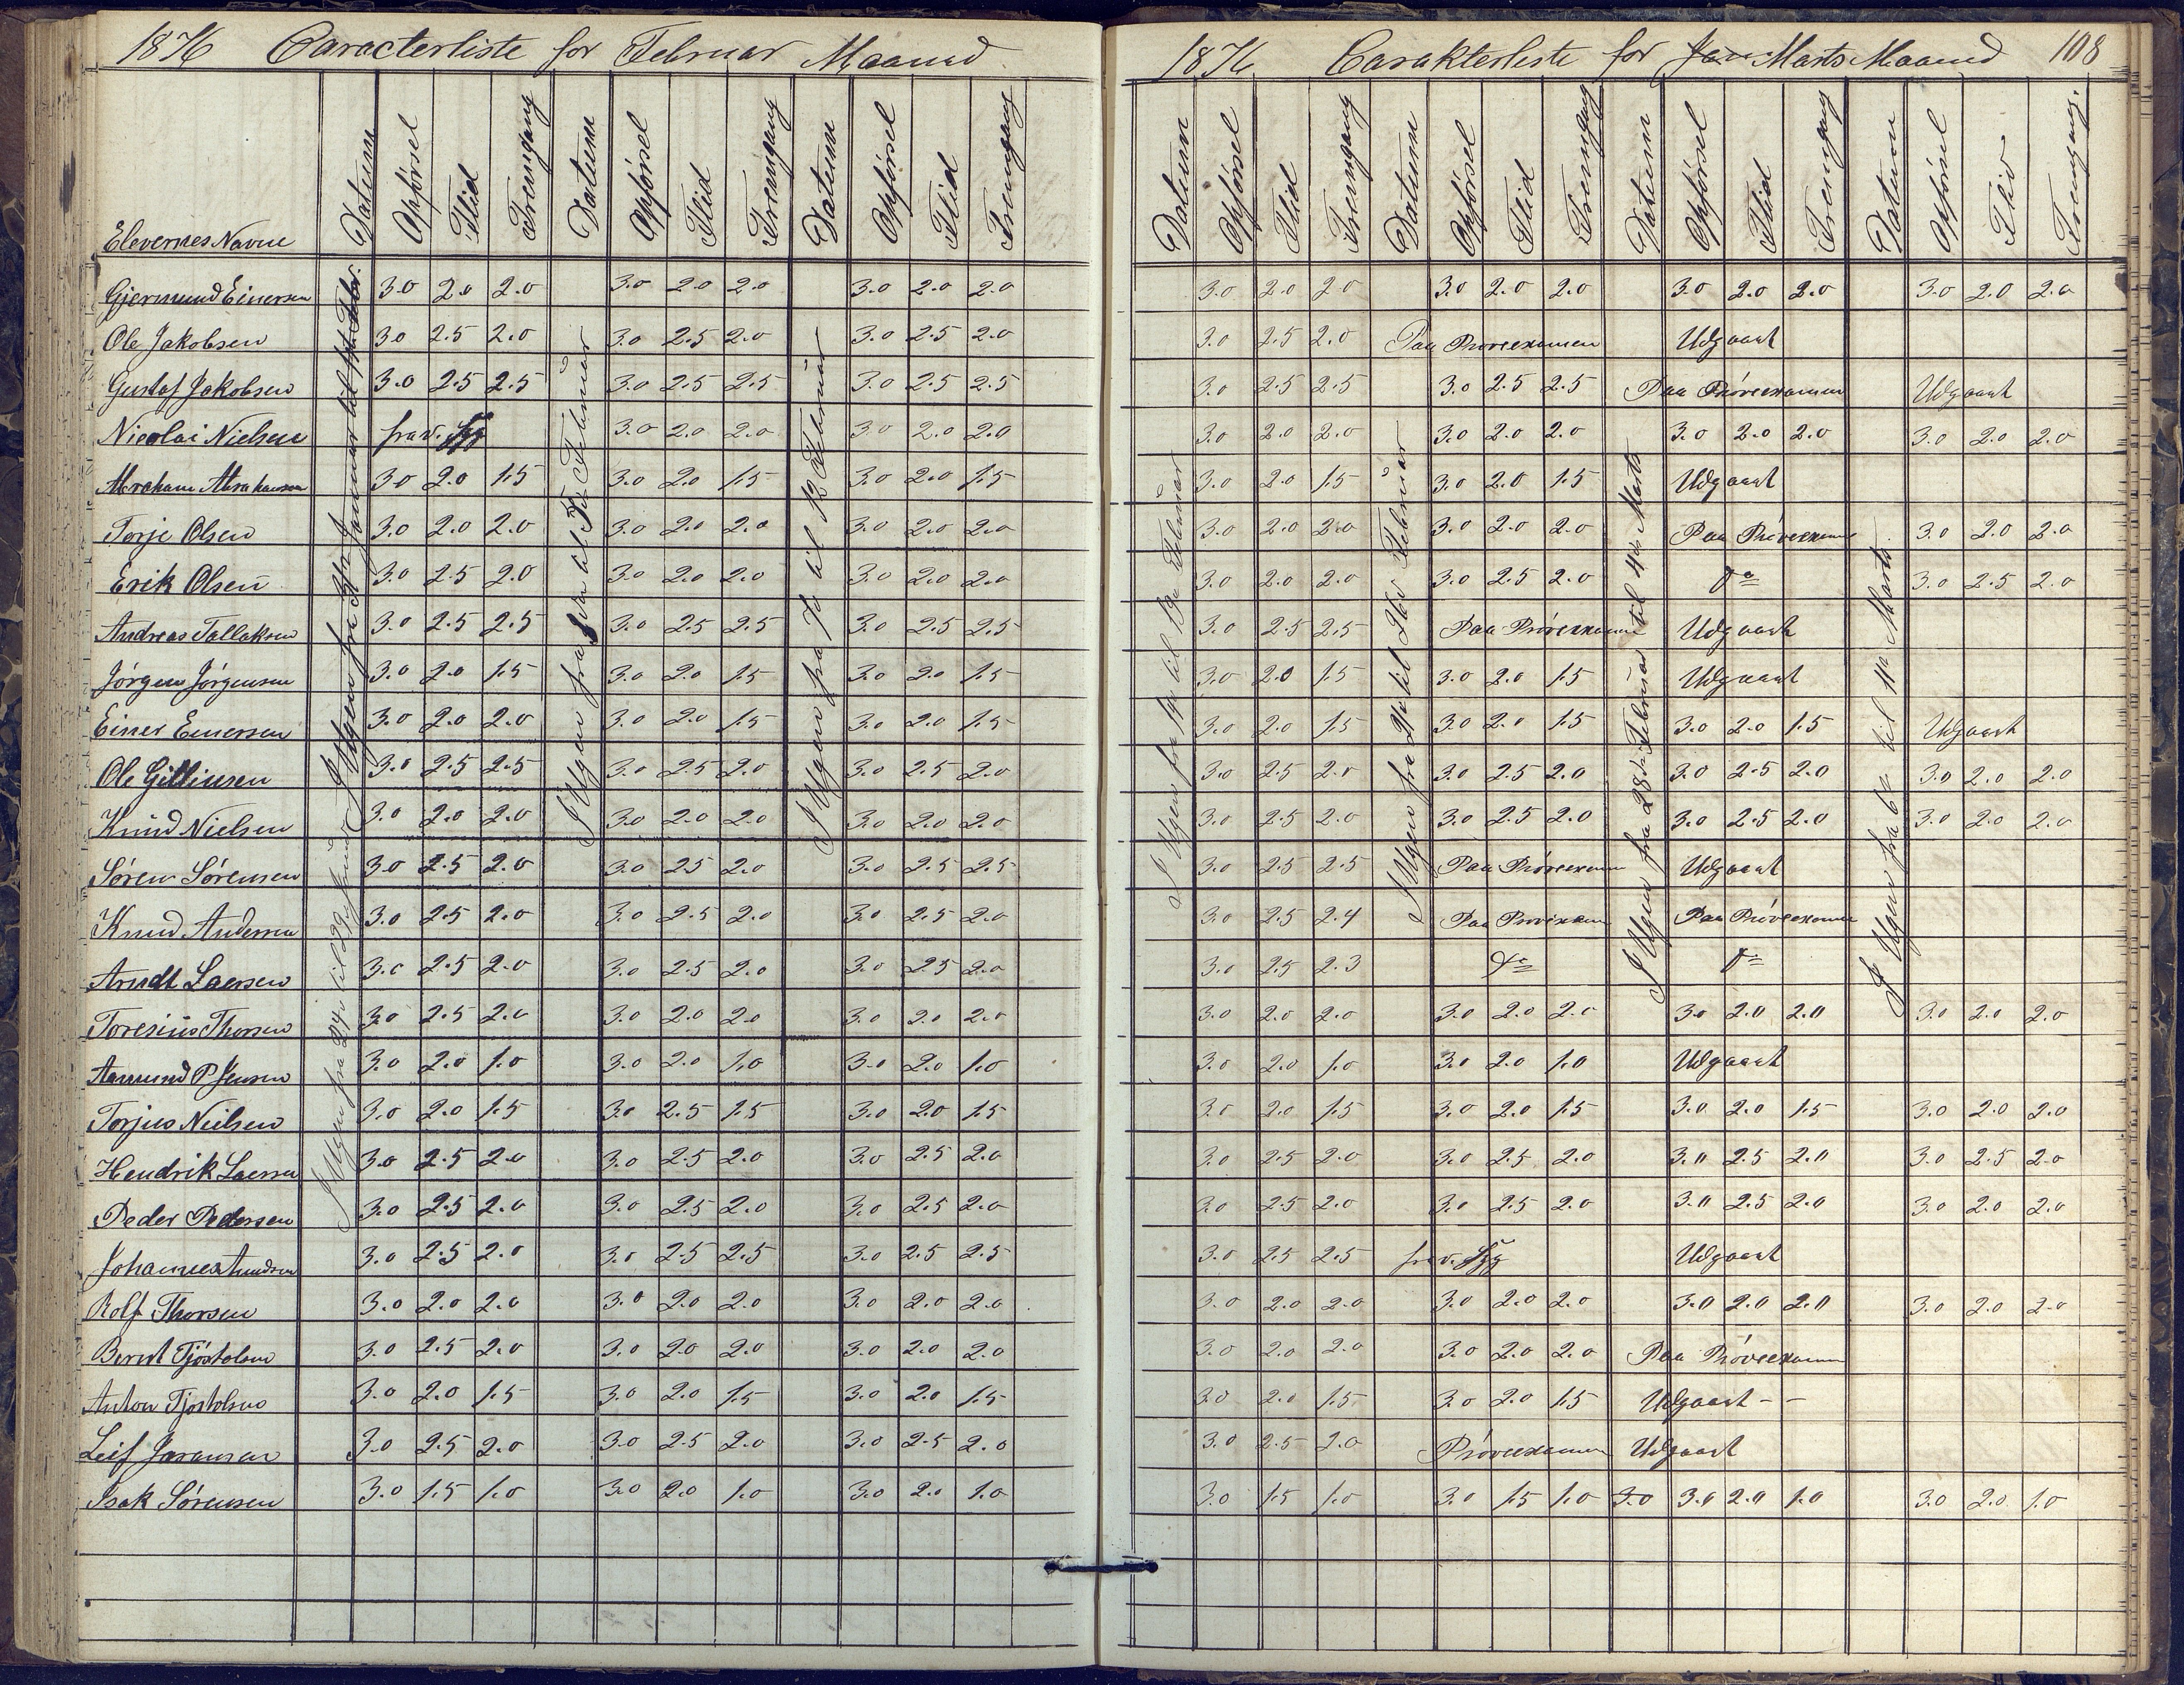 1876 Caracterliste for Februar Maaned
Elevernes Navne Datum Opförsel Flid Fremgang Datum Opförsel Flid Fremgang Datum Opförsel Flid Fremgang
I Ugen fra 24 til 29
I Ugen fra 31te Januar til
I Ugen fra til Februar
I Ugen fra 7de til 12 Februar
Gjermund Einersen 3.0 2.0 2.0 3.0 2.0 2.0 3.0 2.0 2.0
Ole Jakobsen 3.0 2.5 2.0 3.0 2.5 2.0 3.0 2.5 2.0
Gustaf Jakobsen 3.0 2.5 2.5 3.0 2.5 2.5 3.0 2.5 2.5
Nicolai Nielsen frav. Syg 3.0 2.0 2.0 3.0 2.0 2.0
Abraham Abrahamsen 3.0 2.0 1.5 3.0 2.0 1.5 3.0 2.0 1.5
Torje Olsen 3.0 2.0 2.0 3.0 2.0 2.0 3.0 2.0 2.0
Erik Olsen 3.0 2.5 2.0 3.0 2.0 2.0 3.0 2.0 2.0
Andreas Tallaksen 3.0 2.5 2.5 3.0 2.5 2.5 3.0 2.5 2.5
Jörgen Jörgensen 3.0 2.0 1.5 3.0 2.0 1.5 3.0 2.0 1.5
Einer Einersen 3.0 2.0 2.0 3.0 2.0 1.5 3.0 2.0 1.5
Ole Gittinsen 3.0 2.5 2.5 3.0 2.5 2.0 3.0 2.5 2.0
Knud Nielsen 3.0 2.0 2.0 3.0 2.0 2.0 3.0 2.0 2.0
Sören Sörensen 3.0 2.5 2.0 3.0 2.5 2.0 3.0 2.5 2.5
Knud Andersen 3.0 2.5 2.0 3.0 2.5 2.0 3.0 2.5 2.0
Arndt Laersen 3.0 2.5 2.0 3.0 2.5 2.0 3.0 2.5 2.0
Toresius Thorsen 3.0 2.5 2.0 3.0 2.0 2.0 3.0 2.0 2.0
Aamund P Jensen 3.0 2.0 1.0 3.0 2.0 1.0 3.0 2.0 1.0
Torjus Nielsen 3.0 2.0 1.5 3.0 2.5 1.5 3.0 2.0 1.5
Hendrik Laersen 3.0 2.5 2.0 3.0 2.5 2.0 3.0 2.5 2.0
Peder Pedersen 3.0 2.5 2.0 3.0 2.5 2.0 3.0 2.5 2.0
Johannes Amundsen 3.0 2.5 2.0 3.0 2.5 2.5 3.0 2.5 2.5
Rolf Thorsen 3.0 2.0 2.0 3.0 2.0 2.0 3.0 2.0 2.0
Bernt Tjöstolsen 3.0 2.5 2.0 3.0 2.0 2.0 3.0 2.0 2.0
Anton Tjöstolsen 3.0 2.0 1.5 3.0 2.0 1.5 3.0 2.0 1.5
Leif 3.0 2.5 2.0 3.0 2.5 2.0 3.0 2.5 2.0
Isak Sörensen 3.0 1.5 1.0 3.0 2.0 1.0 3.0 2.0 1.0
1876 Carakterliste for Jan Marts Maaned 108
Datum Opförsel Flid Fremgang Datum Opförsel Flid Fremgang Datum Opförsel Flid Fremgang Datum Opförsel Flid Fremgang.
I Ugen fra 14 til 19 Februar
I Ugen fra 21 til 26 Februar
I Ugen fra 28de Februar til 4de Marts
I Ugen fra 6te til 11te Marts
3.0 2.0 2.0 3.0 2.0 2.0 3.0 2.0 2.0 3.0 2.0 2.0
3.0 2.5 2.0 Paa Pröveexamen Udgaaet
3.0 2.5 2.5 3.0 2.5 2.5 Paa Pröveexamen Udgaaet
3.0 2.0 2.0 3.0 2.0 2.0 3.0 2.0 2.0 3.0 2.0 2.0
3.0 2.0 1.5 3.0 2.0 1.5 Udgaaet
3.0 2.0 2.0 3.0 2.0 2.0 Paa Pröveexamen 3.0 2.0 2.0
3.0 2.0 2.0 3.0 2.5 2.0 3.0 2.5 2.0
3.0 2.5 2.5 Paa Pröveexamen Udgaaet
3.0 2.0 1.5 3.0 2.0 1.5 Udgaaet
3.0 2.0 1.5 3.0 2.0 1.5 3.0 2.0 1.5 Udgaaet
3.0 2.5 2.0 3.0 2.5 2.0 3.0 2.5 2.0 3.0 2.0 2.0
3.0 2.5 2.0 3.0 2.5 2.0 3.0 2.5 2.0 3.0 2.0 2.0
3.0 2.5 2.5 Paa Pröveexamen Udgaaet
3.0 2.5 2.4 Paa Pröveexamen Paa Pröveexamen
3.0 2.5 2.3
3.0 2.0 2.0 3.0 2.0 2.0 3.0 2.0 2.0 3.0 2.0 2.0
3.0 2.0 1.0 3.0 2.0 1.0 Udgaaet
3.0 2.0 1.5 3.0 2.0 1.5 3.0 2.0 1.5 3.0 2.0 2.0
3.0 2.5 2.0 3.0 2.5 2.0 3.0 2.5 2.0 3.0 2.5 2.0
3.0 2.5 2.0 3.0 2.5 2.0 3.0 2.5 2.0 3.0 2.0 2.0
3.0 2.5 2.5 frav. Syg Udgaaet
3.0 2.0 2.0 3.0 2.0 2.0 3.0 2.0 2.0 3.0 2.0 2.0
3.0 2.0 2.0 3.0 2.0 2.0 Paa Pröveexamen
3.0 2.0 1.5 3.0 2.0 1.5 Udgaaet - -
3.0 2.5 2.0 Pröveexamen Udgaaet
3.0 1.5 1.0 3.0 1.5 1.0 3.0 3.0 2.0 1.0 3.0 2.0 1.0